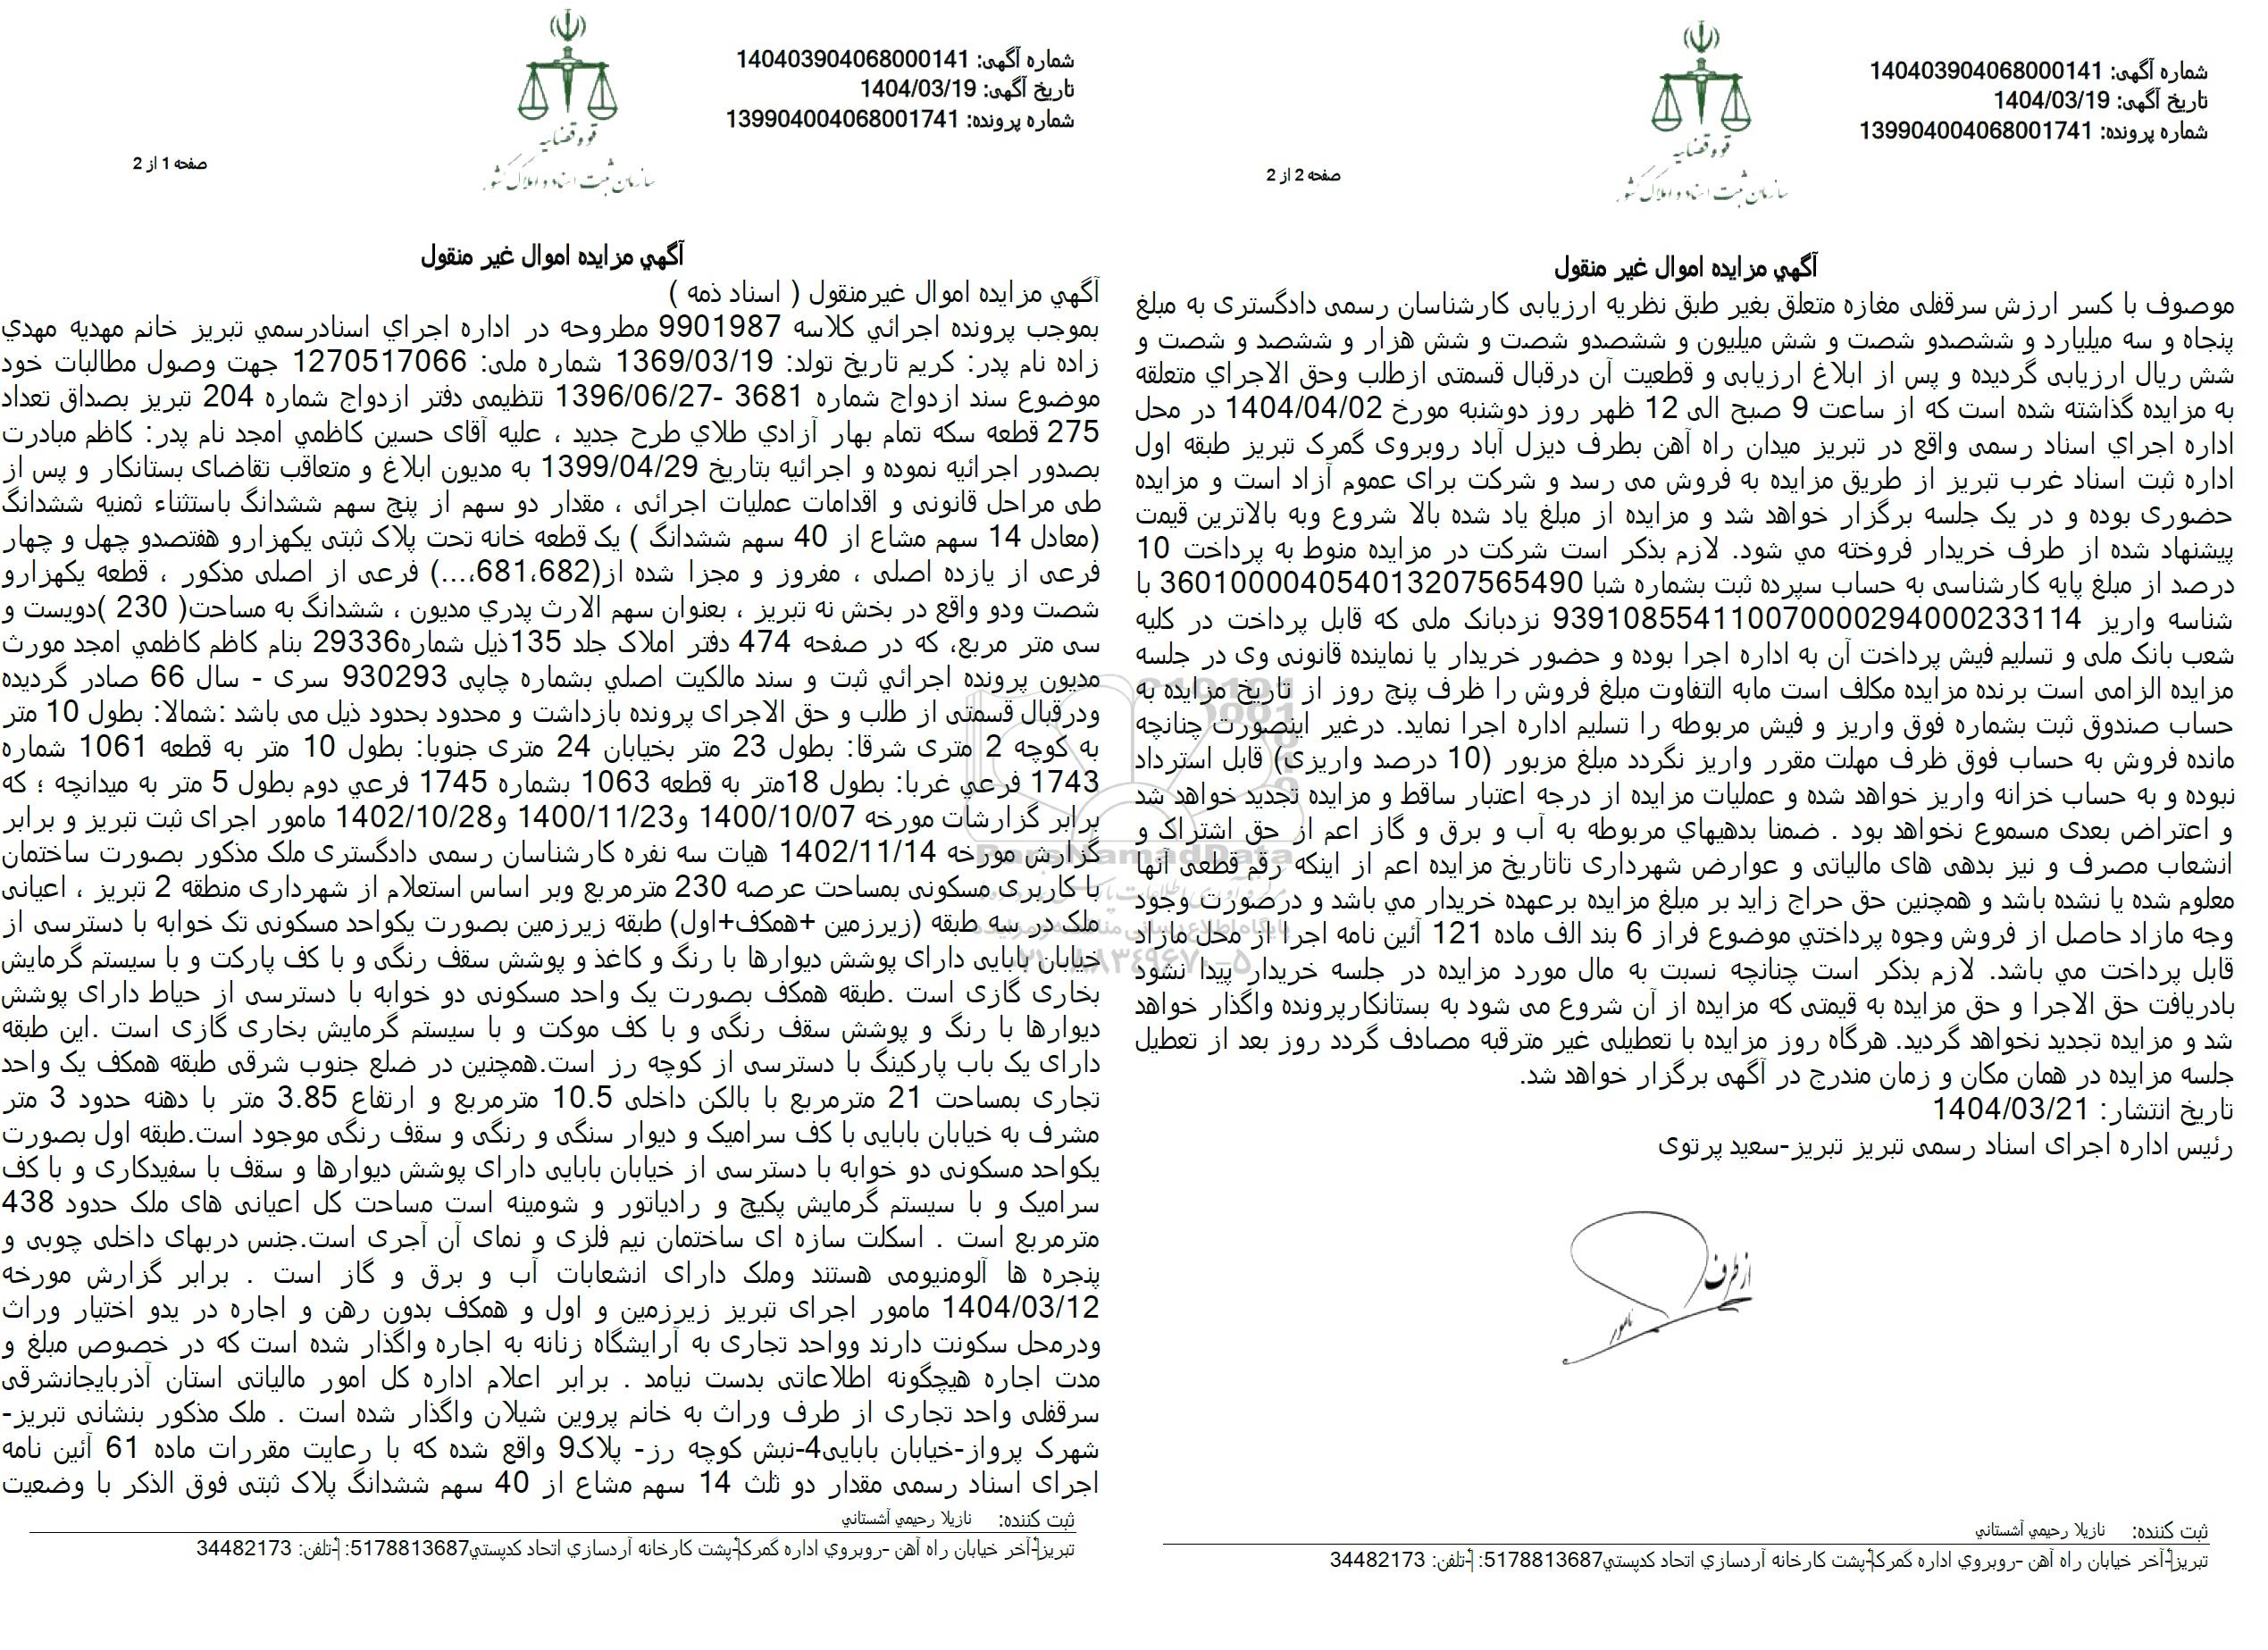 شماره آگهی: 140403904068000141
تاریخ آگهی: 1404/03/19
شماره پرونده: 139904004068001741
قوه قضاییه
سازمان ثبت اسناد و املاک کشور
صفحه 1 از 2
آگهي مزايده اموال غير منقول
آگهي مزايده اموال غيرمنقول ( اسناد ذمه )
بموجب پرونده اجرائي کلاسه 9901987 مطروحه در اداره اجراي اسنادرسمي تبریز خانم مهدیه مهدي
زاده نام پدر: کریم تاریخ تولد: 1369/03/19 شماره ملی: 1270517066 جهت وصول مطالبات خود
موضوع سند ازدواج شماره 3681 -1396/06/27 تنظیمی دفتر ازدواج شماره 204 تبریز بصداق تعداد
275 قطعه سکه تمام بهار آزادي طلاي طرح جدید ، علیه آقای حسین کاظمي امجد نام پدر: کاظم مبادرت
بصدور اجرائیه نموده و اجرائیه بتاریخ 1399/04/29 به مدیون ابلاغ و متعاقب تقاضای بستانکار و پس از
طی مراحل قانونی و اقدامات عملیات اجرائی ، مقدار دو سهم از پنج سهم ششدانگ باستثناء ثمنیه ششدانگ
(معادل 14 سهم مشاع از 40 سهم ششدانگ ) یک قطعه خانه تحت پلاک ثبتی یکهزارو هفتصدو چهل و چهار
فرعی از یازده اصلی ، مفروز و مجزا شده از(681،682،...) فرعی از اصلی مذکور ، قطعه یکهزارو
شصت ودو واقع در بخش نه تبریز ، بعنوان سهم الارث پدري مدیون ، ششدانگ به مساحت( 230 )دویست و
سی متر مربع، که در صفحه 474 دفتر املاک جلد 135ذیل شماره29336 بنام کاظم کاظمي امجد مورث
مدیون پرونده اجرائي ثبت و سند مالکیت اصلي بشماره چاپی 930293 سری - سال 66 صادر گردیده
ودرقبال قسمتی از طلب و حق الاجرای پرونده بازداشت و محدود بحدود ذیل می باشد :شمالا: بطول 10 متر
به کوچه 2 متری شرقا: بطول 23 متر بخیابان 24 متری جنوبا: بطول 10 متر به قطعه 1061 شماره
1743 فرعي غربا: بطول 18متر به قطعه 1063 بشماره 1745 فرعي دوم بطول 5 متر به میدانچه ؛ که
برابر گزارشات مورخه 1400/10/07 و1400/11/23 و1402/10/28 مامور اجرای ثبت تبریز و برابر
گزارش مورخه 1402/11/14 هیات سه نفره کارشناسان رسمی دادگستری ملک مذکور بصورت ساختمان
با کاربری مسکونی بمساحت عرصه 230 مترمربع وبر اساس استعلام از شهرداری منطقه 2 تبریز ، اعیانی
ملک در سه طبقه (زیرزمین +همکف+اول) طبقه زیرزمین بصورت یکواحد مسکونی تک خوابه با دسترسی از
خیابان بابایی دارای پوشش دیوارها با رنگ و کاغذ و پوشش سقف رنگی و با کف پارکت و با سیستم گرمایش
بخاری گازی است .طبقه همکف بصورت یک واحد مسکونی دو خوابه با دسترسی از حیاط دارای پوشش
دیوارها با رنگ و پوشش سقف رنگی و با کف موکت و با سیستم گرمایش بخاری گازی است .این طبقه
دارای یک باب پارکینگ با دسترسی از کوچه رز است.همچنین در ضلع جنوب شرقی طبقه همکف یک واحد
تجاری بمساحت 21 مترمربع با بالکن داخلی 10.5 مترمربع و ارتفاع 3.85 متر با دهنه حدود 3 متر
مشرف به خیابان بابایی با کف سرامیک و دیوار سنگی و رنگی و سقف رنگی موجود است.طبقه اول بصورت
یکواحد مسکونی دو خوابه با دسترسی از خیابان بابایی دارای پوشش دیوارها و سقف با سفیدکاری و با کف
سرامیک و با سیستم گرمایش پکیج و رادیاتور و شومینه است مساحت کل اعیانی های ملک حدود 438
مترمربع است . اسکلت سازه ای ساختمان نیم فلزی و نمای آن آجری است.جنس دربهای داخلی چوبی و
پنجره ها آلومنیومی هستند وملک دارای انشعابات آب و برق و گاز است . برابر گزارش مورخه
1404/03/12 مامور اجرای تبریز زیرزمین و اول و همکف بدون رهن و اجاره در یدو اختیار وراث
ودرمحل سکونت دارند وواحد تجاری به آرایشگاه زنانه به اجاره واگذار شده است که در خصوص مبلغ و
مدت اجاره هیچگونه اطلاعاتی بدست نیامد . برابر اعلام اداره کل امور مالیاتی استان آذربایجانشرقی
سرقفلی واحد تجاری از طرف وراث به خانم پروین شیلان واگذار شده است . ملک مذکور بنشانی تبریز-
شهرک پرواز-خیابان بابایی4-نبش کوچه رز- پلاک9 واقع شده که با رعایت مقررات ماده 61 آئین نامه
اجرای اسناد رسمی مقدار دو ثلث 14 سهم مشاع از 40 سهم ششدانگ پلاک ثبتی فوق الذکر با وضعیت
ثبت کننده: نازيلا رحيمي آشستاني
تبريز-آخر خيابان راه آهن –روبروي اداره گمرک-پشت کارخانه آردسازي اتحاد کدپستي5178813687: -تلفن: 34482173
شماره آگهی: 140403904068000141
تاریخ آگهی: 1404/03/19
شماره پرونده: 139904004068001741
قوه قضاییه
سازمان ثبت اسناد و املاک کشور
صفحه 2 از 2
آگهي مزايده اموال غير منقول
موصوف با کسر ارزش سرقفلی مغازه متعلق بغیر طبق نظریه ارزیابی کارشناسان رسمی دادگستری به مبلغ
پنجاه و سه میلیارد و ششصدو شصت و شش میلیون و ششصدو شصت و شش هزار و ششصد و شصت و
شش ریال ارزیابی گردیده و پس از ابلاغ ارزیابی و قطعیت آن درقبال قسمتی ازطلب وحق الاجراي متعلقه
به مزایده گذاشته شده است که از ساعت 9 صبح الی 12 ظهر روز دوشنبه مورخ 1404/04/02 در محل
اداره اجراي اسناد رسمی واقع در تبریز میدان راه آهن بطرف دیزل آباد روبروی گمرک تبریز طبقه اول
اداره ثبت اسناد غرب تبریز از طریق مزایده به فروش می رسد و شرکت برای عموم آزاد است و مزایده
حضوری بوده و در یک جلسه برگزار خواهد شد و مزایده از مبلغ یاد شده بالا شروع وبه بالاترین قیمت
پیشنهاد شده از طرف خریدار فروخته مي شود. لازم بذکر است شرکت در مزایده منوط به پرداخت 10
درصد از مبلغ پایه کارشناسی به حساب سپرده ثبت بشماره شبا 360100004054013207565490 با
شناسه واریز 939108554110070000294000233114 نزدبانک ملی که قابل پرداخت در کلیه
شعب بانک ملی و تسلیم فیش پرداخت آن به اداره اجرا بوده و حضور خریدار یا نماینده قانونی وی در جلسه
مزایده الزامی است برنده مزایده مکلف است مابه التفاوت مبلغ فروش را ظرف پنج روز از تاریخ مزایده به
حساب صندوق ثبت بشماره فوق واریز و فیش مربوطه را تسلیم اداره اجرا نماید. درغیر اینصورت چنانچه
مانده فروش به حساب فوق ظرف مهلت مقرر واریز نگردد مبلغ مزبور (10 درصد واریزی) قابل استرداد
نبوده و به حساب خزانه واریز خواهد شده و عملیات مزایده از درجه اعتبار ساقط و مزایده تجدید خواهد شد
و اعتراض بعدی مسموع نخواهد بود . ضمنا بدهیهاي مربوطه به آب و برق و گاز اعم از حق اشتراک و
انشعاب مصرف و نیز بدهی های مالیاتی و عوارض شهرداری تاتاریخ مزایده اعم از اینکه رقم قطعی آنها
معلوم شده یا نشده باشد و همچنین حق حراج زاید بر مبلغ مزایده برعهده خریدار مي باشد و درصورت وجود
وجه مازاد حاصل از فروش وجوه پرداختي موضوع فراز 6 بند الف ماده 121 آئین نامه اجرا از محل مازاد
قابل پرداخت مي باشد. لازم بذکر است چنانچه نسبت به مال مورد مزایده در جلسه خریدار پیدا نشود
بادریافت حق الاجرا و حق مزایده به قیمتی که مزایده از آن شروع می شود به بستانکارپرونده واگذار خواهد
شد و مزایده تجدید نخواهد گردید. هرگاه روز مزایده با تعطیلی غیر مترقبه مصادف گردد روز بعد از تعطیل
جلسه مزایده در همان مکان و زمان مندرج در آگهی برگزار خواهد شد.
تاریخ انتشار: 1404/03/21
رئیس اداره اجرای اسناد رسمی تبریز تبریز-سعید پرتوی
از طرف
ثبت کننده: نازيلا رحيمي آشستاني
تبريز-آخر خيابان راه آهن –روبروي اداره گمرک-پشت کارخانه آردسازي اتحاد کدپستي5178813687: -تلفن: 34482173
ParsNamadData
پایگاه اطلاع رسانی مناقصه و مزایده
۰۲۱-۸۸۳۴۹۶۷۰-۵